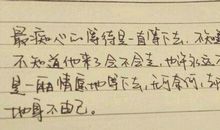 最痴心的等待是一直等下去,不知道
不知道他来了会不会走,也许永远不
是一厢情愿地等下去,无可奈何,却
地身不由己。